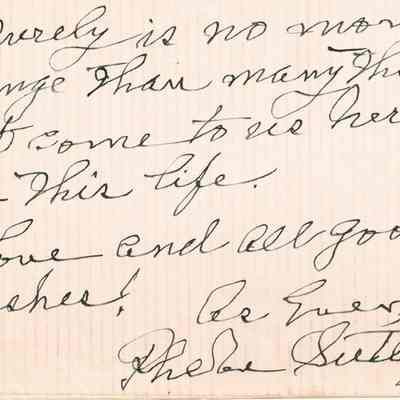 surely is no mor
nge than many th
t come to us her
this life.
Love and all goo
shes!
As Ever
Phebe